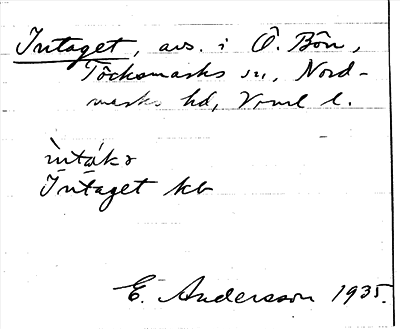 Intaget, avs. i Ö. Bön,
Töcksmarks sn, Nord-
marks hd, Vrml l.
ìntákə
Intaget kb
E. Andersson 1935.